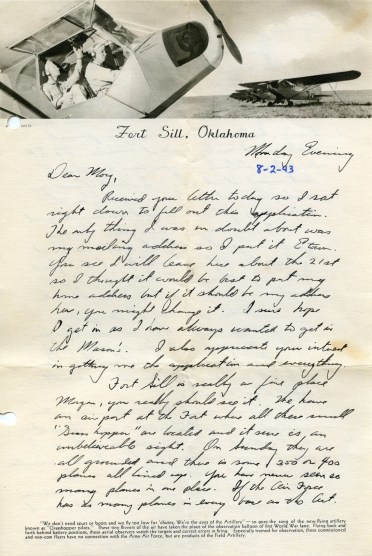 Fort Sill, Oklahoma
Monday Evening
8-2-43
Dear Mary,
Received your letter today so I sat
right down to fill out this application.
The only thing I was in doubt about was
my mailing address so I put it E town.
You see I will leave here about the 21st
so I thought it would be best to put my
home address but if it should be my address
here, you might change it. I sure hope
I get in as I have always wanted to get in
the Mason's. I also appreciate your interest
in getting me the application and everything.
Fort Sill is really a fine place
you really should see it. We have
an air port at the Fort where all these small
are located and it sure is an
unbelievable sight. On Sunday they are
all grounded and there is some 300 or 400
planes all lined up. You have never seen so
many planes in one place. If the Air Force
has as many planes in every base as this Art.
"We don't need spurs or boots and we fly too low for 'chutes; We're the eyes of the Artillery" — so goes the song of the new flying artillery
known as "Grasshopper pilots." These new fliers of the air have taken the place of the observation balloon of the first World War. Flying back and
forth behind battery positions, these aerial observers watch the targets and correct errors in firing. Especially trained for observation, these commissioned
and non-com fliers have no connection with the Army Air Force, but are products of the Field Artillery.